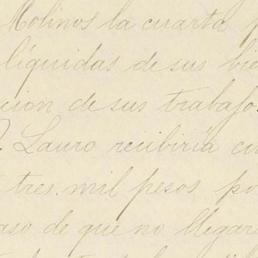 Molinos la cuarta p
líquidas de sus bie
cion de sus trabajos
D. Lauro recibiría cu
tres mil pesos po
aso de que no llegar